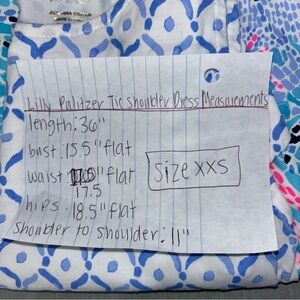 Lilly Pulitzer Tie Shoulder Dress Measurements
length: 36"
bust: 15.5" flat
waist: " flat
17.5
hips: 18.5" flat
shoulder to shoulder: 11"
Size XXS